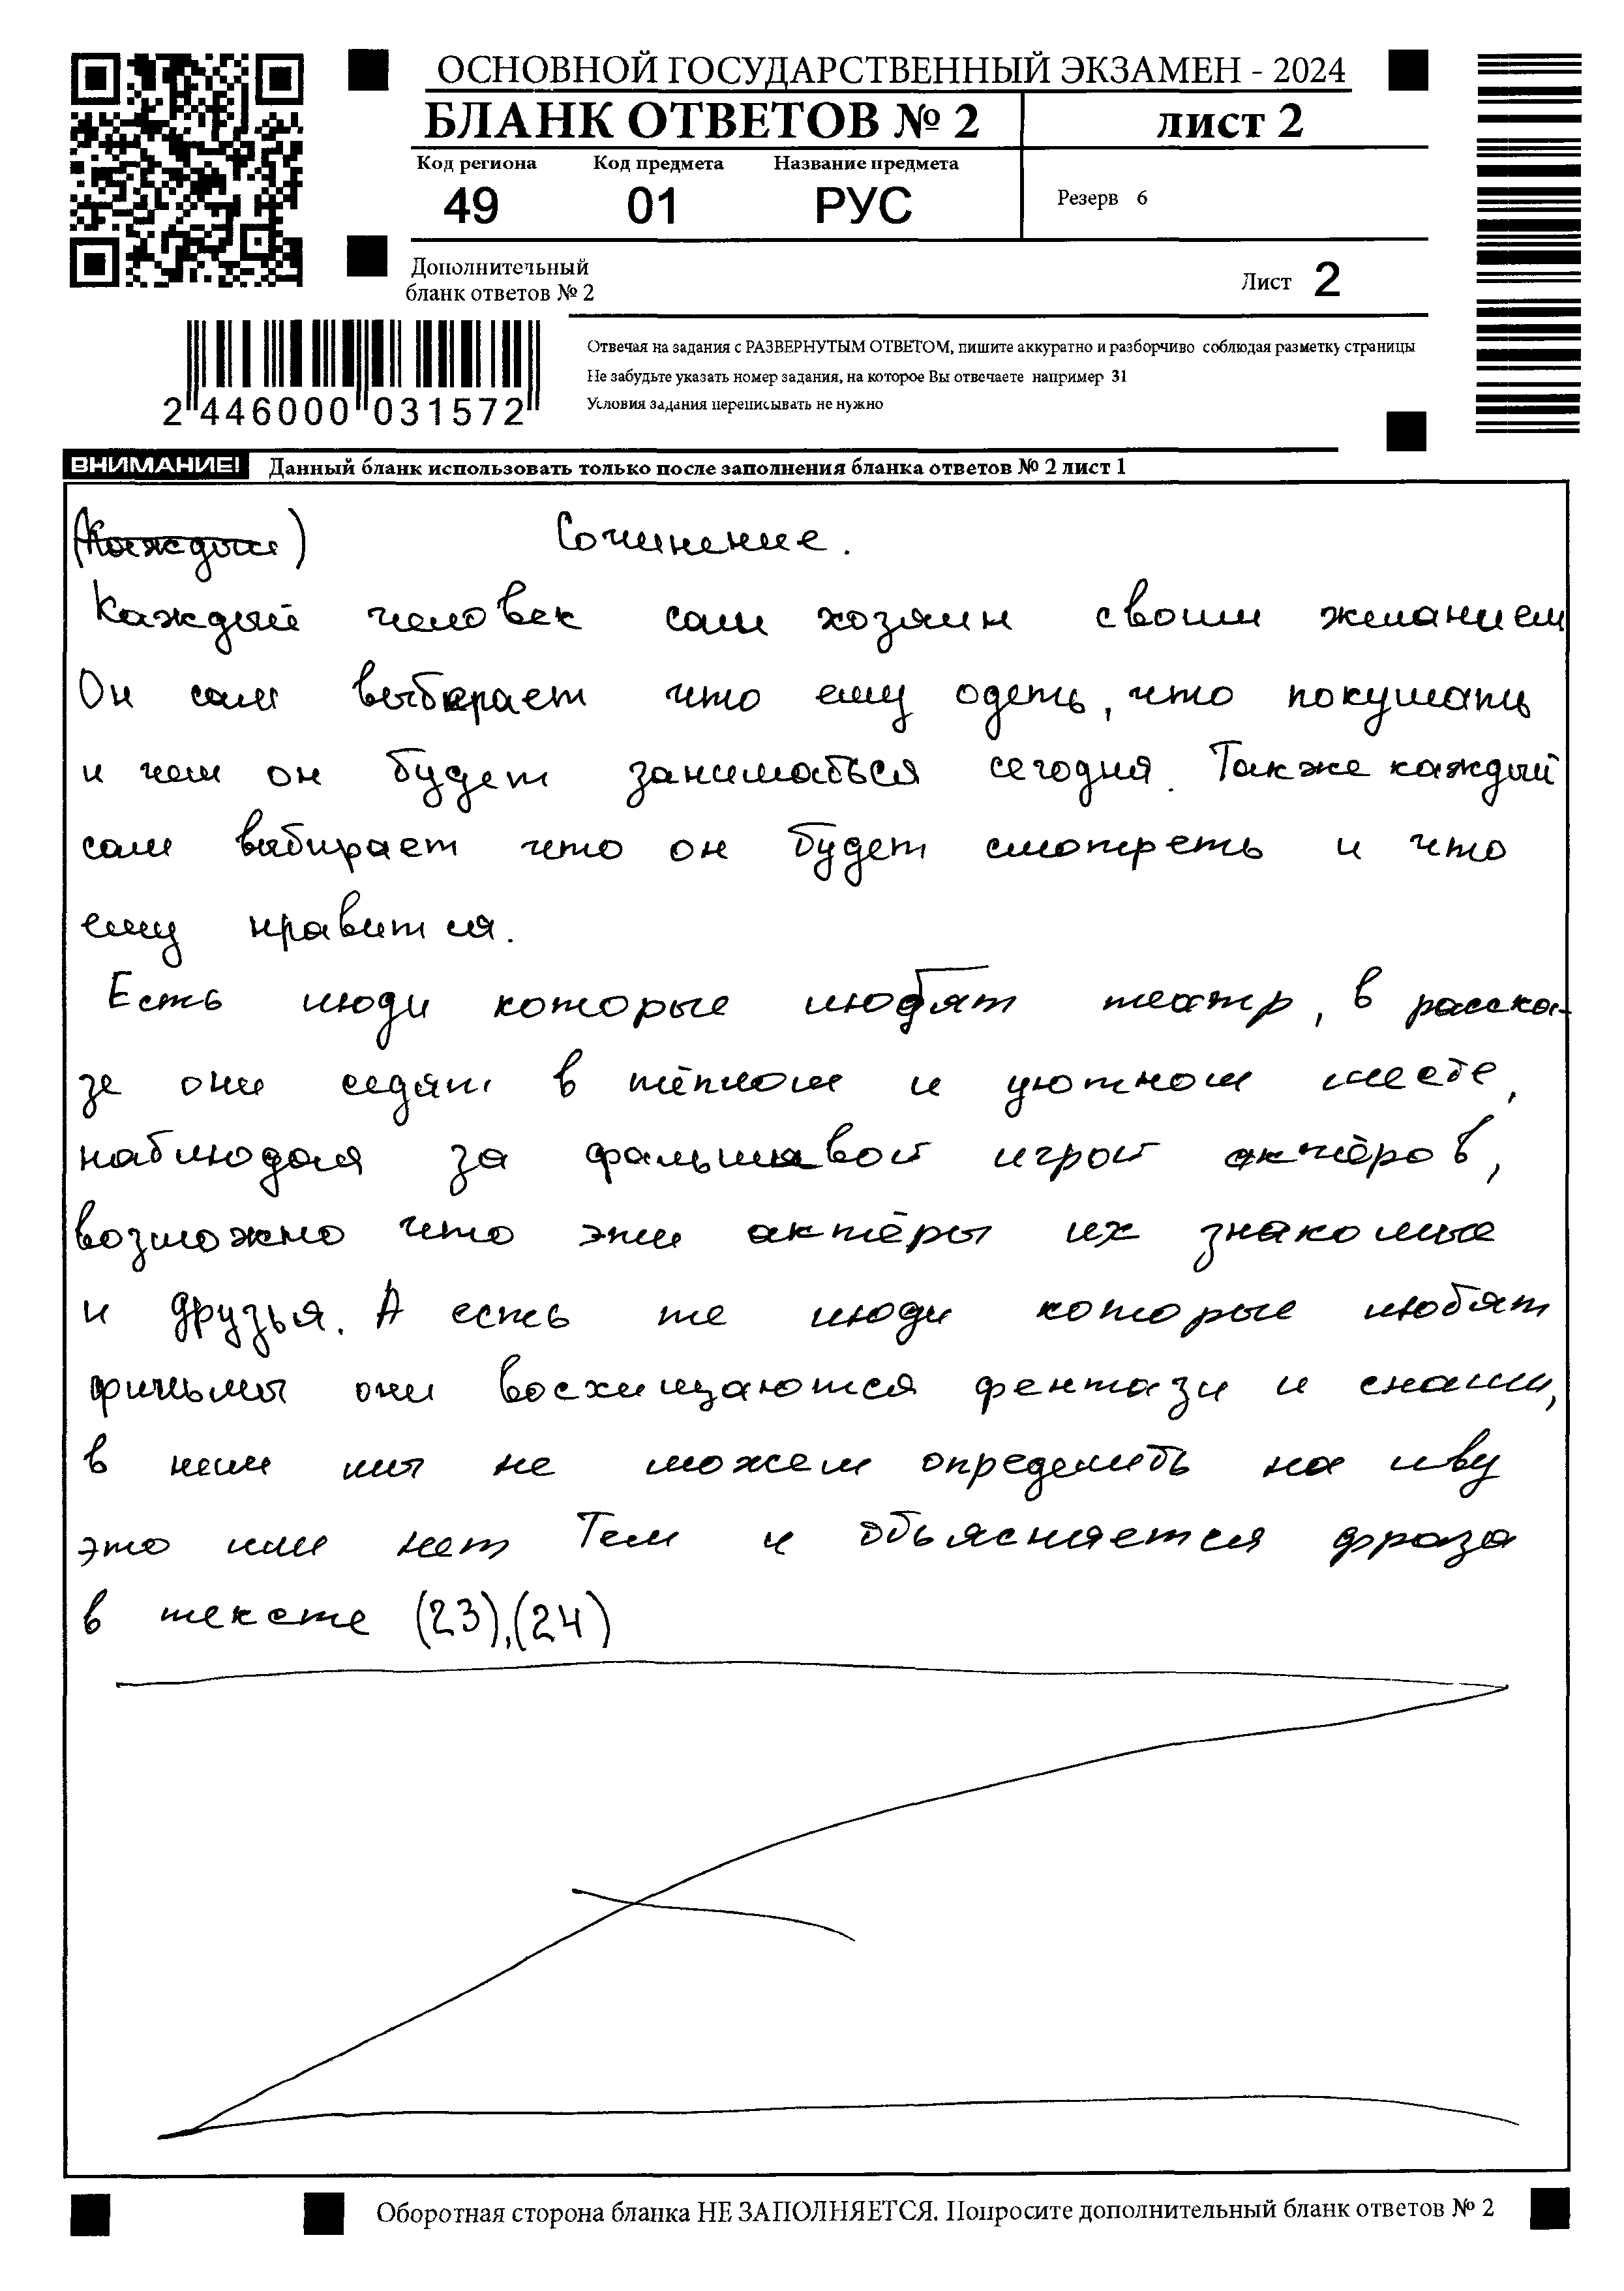 ОСНОВНОЙ ГОСУДАРСТВЕННЫЙ ЭКЗАМЕН - 2024
БЛАНК ОТВЕТОВ № 2 лист 2
Код региона Код предмета Название предмета
49 01 РУС Резерв 6
Дополнительный
бланк ответов № 2 Лист 2
Отвечая на задания с РАЗВЕРНУТЫМ ОТВЕТОМ, пишите аккуратно и разборчиво соблюдая разметку страницы
Не забудьте указать номер задания, на которое Вы отвечаете например 31
Условия задания переписывать не нужно
2 446000 031572
ВНИМАНИЕ! Данный бланк использовать только после заполнения бланка ответов № 2 лист 1
(Каждый) Сочинение.
Каждый человек сам хозяин своим желанием
Он сам выберает что ему одеть, что покушать
и чем он будет заниматься сегодня. Также каждый
сам выбирает что он будет смотреть и что
ему нравится.
Есть люди которые любят театр, в расска-
зе они седят в тёплом и уютном месте,
наблюдая за фальшивой игрой актёров,
возможно что эти актёры их знакомые
и друзья. А есть те люди которые любят
фильмы они восхищаются фентази и снами,
в нём мы не можем определить на иву
это или нет Тем и объясняется фраза
в тексте (23),(24)
Оборотная сторона бланка НЕ ЗАПОЛНЯЕТСЯ. Попросите дополнительный бланк ответов № 2